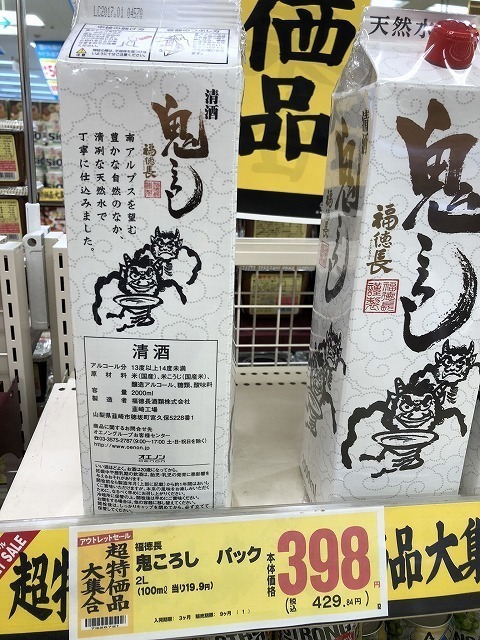 LC2017.01 04570
価
品
天然水
清酒
鬼ころし
福徳長
南アルプスを望む
豊かな自然のなか、
清冽な天然水で
丁寧に仕込みました。
清酒
アルコール分 13度以上14度未満
原材料 米(国産)、米こうじ(国産米)、
醸造アルコール、糖類、酸味料
容量 2000ml
製造者 福徳長酒類株式会社
韮崎工場
山梨県韮崎市穂坂町宮久保5228番1
商品に関するお問合せ先
オエノングループお客様センター
☎03-3575-2787(9:00〜17:00 土・日・祝日を除く)
http://www.oenon.jp
オエノン
oenon
清酒
鬼ころし
福徳長
SALE
超
アウトレットセール
超特価品
大集合
福徳長
鬼ころし パック
2L
(100ml 当り19.9円)
本体価格
398円
(税込 429.84円)
入荷期限:3ヶ月 販売期限:9ヶ月 (1)
価品大集
STRONG